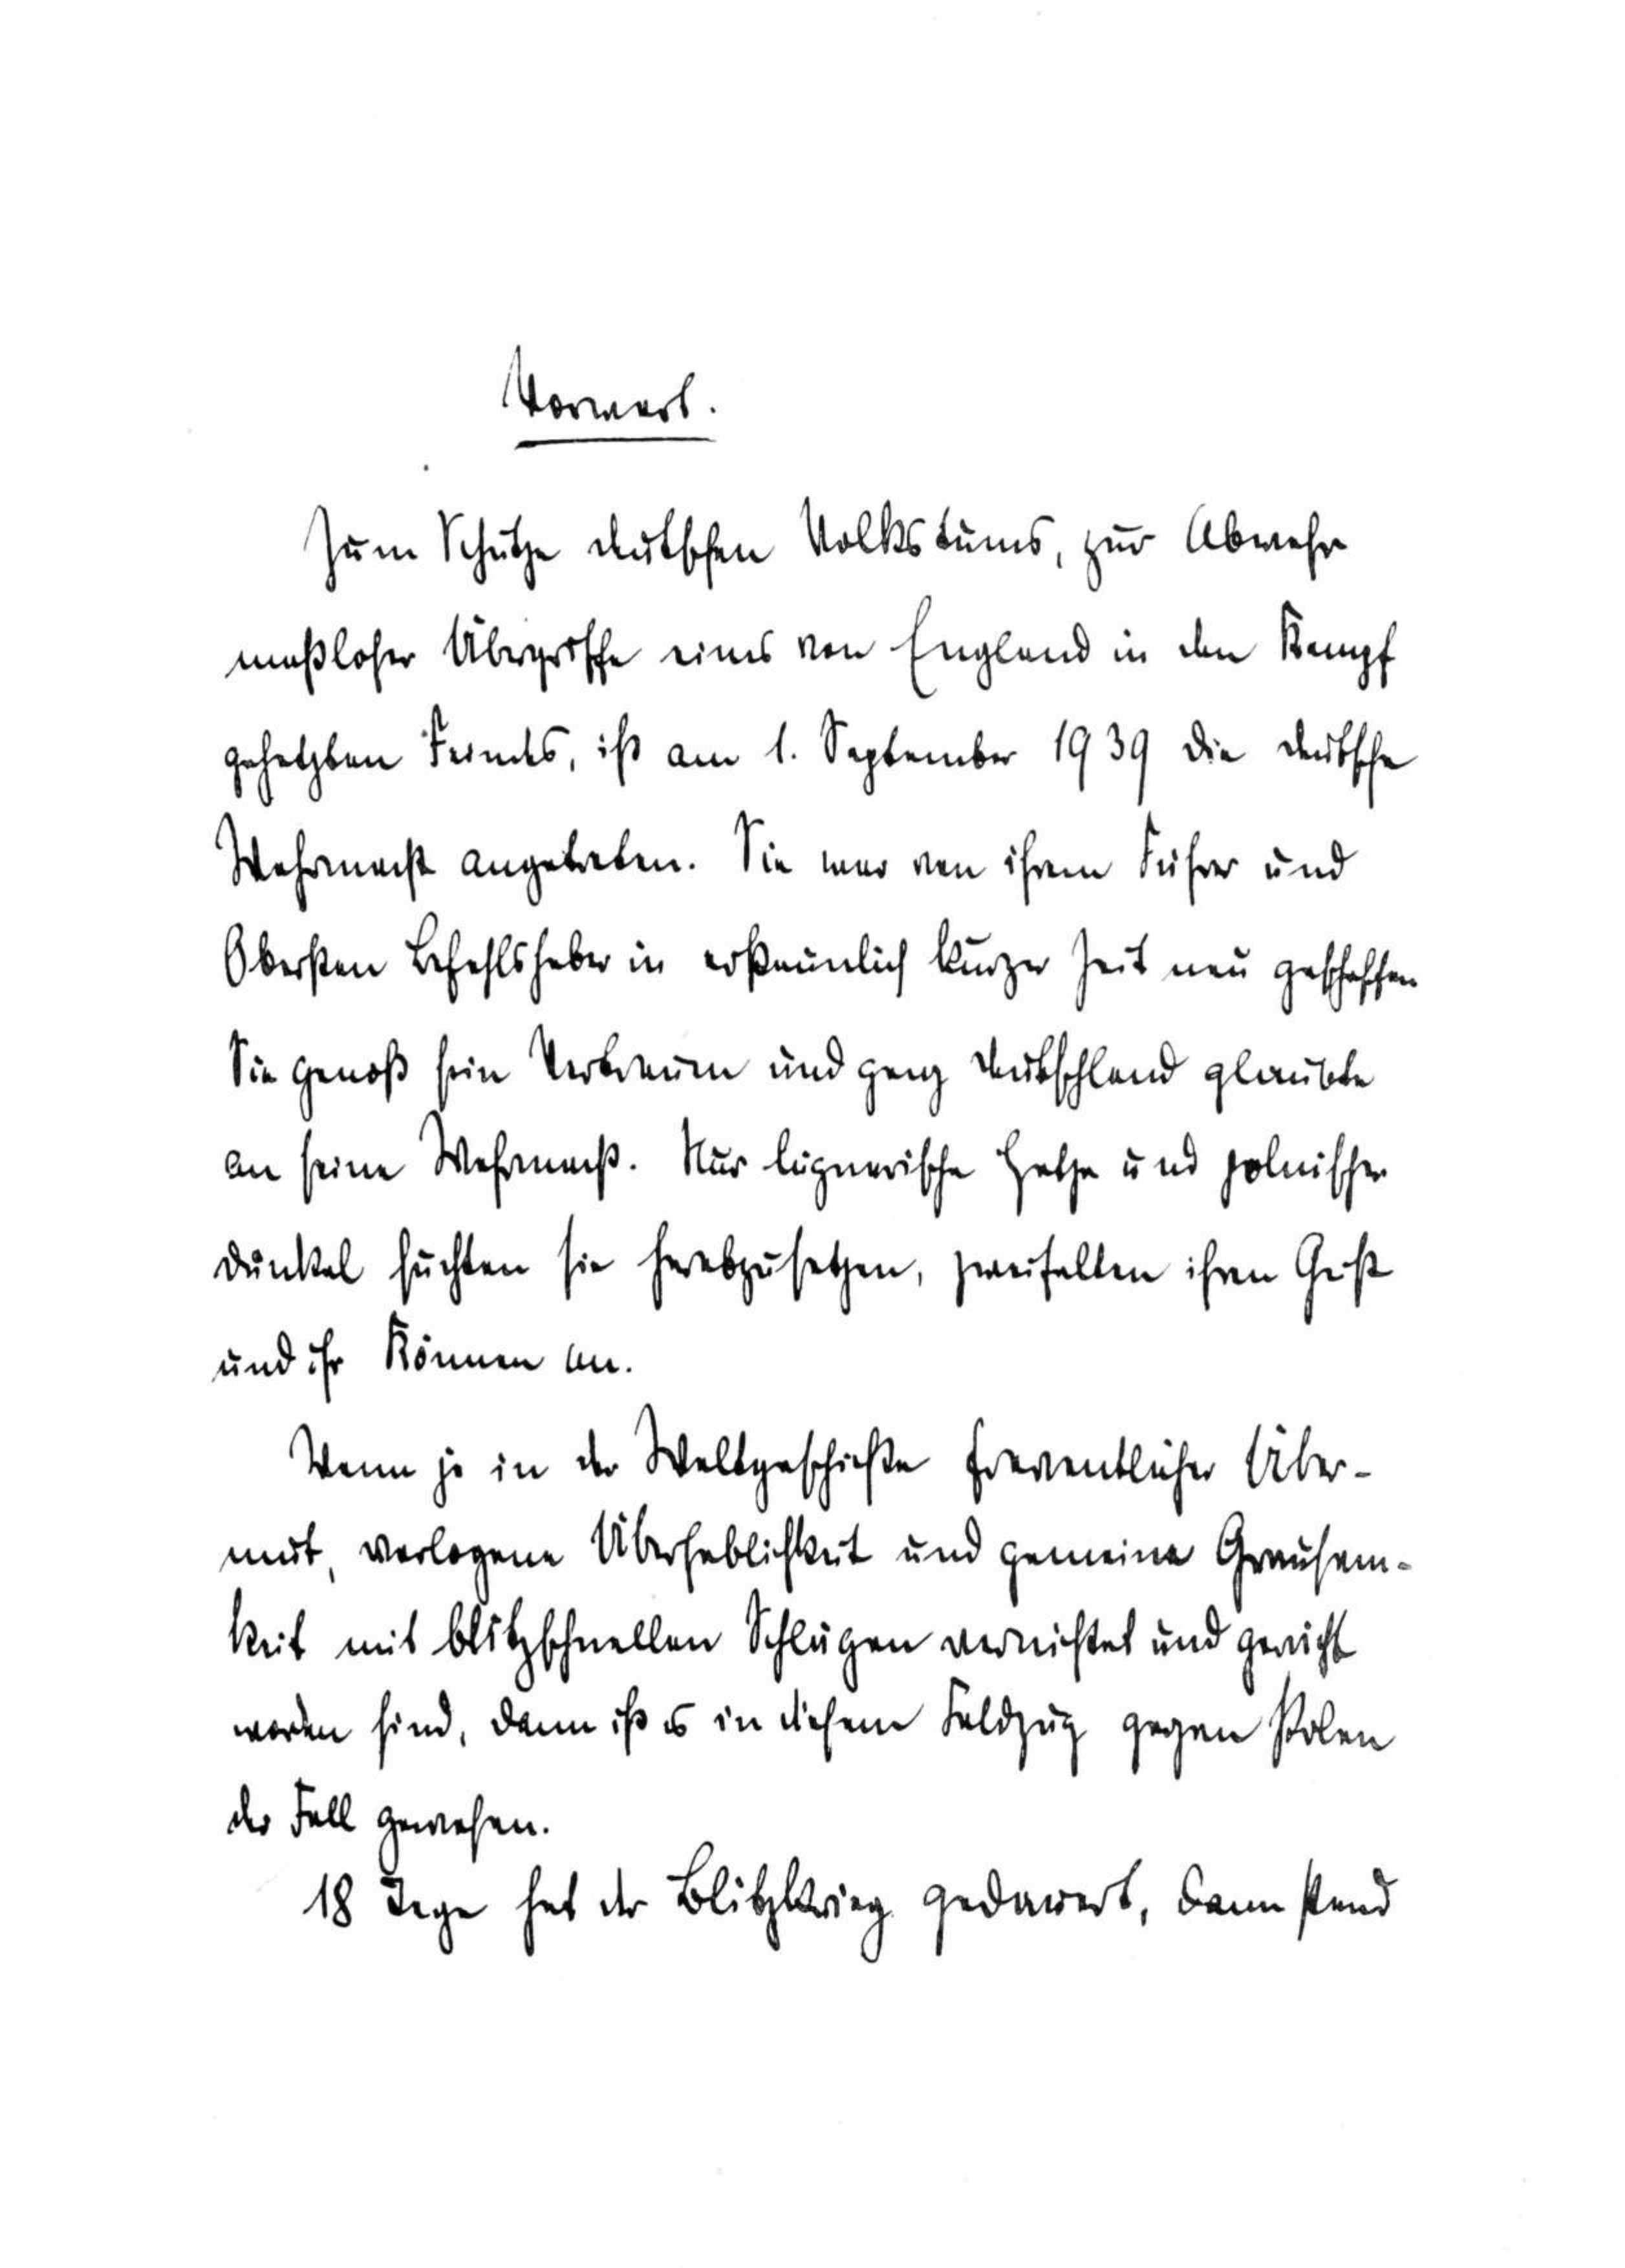 Vorwort.
Zum Schutze deutschen Volkstums, zur Abwehr
maßloser Übergriffe eines von England in den Kampf
gehetzten Feindes, ist am 1. September 1939 die deutsche
Wehrmacht angetreten. Sie war von ihrem Führer und
Obersten Befehlshaber in erstaunlich kurzer Zeit neu geschaffen
Sie genoß sein Vertrauen und ganz Deutschland glaubte
an seine Wehrmacht. Nur lügnerische Hetze und polnischer
Dünkel suchten sie herabzusetzen, zweifelten ihren Geist
und ihr Können an.
Wenn je in der Weltgeschichte freventlicher Über-
mut, verlogene Überheblichkeit und gemeine Grausam-
keit mit blitzschnellen Schlägen vernichtet und gerächt
worden sind, dann ist es in diesem Feldzug gegen Polen
der Fall gewesen.
18 Tage hat der Blitzkrieg gedauert, dann stand